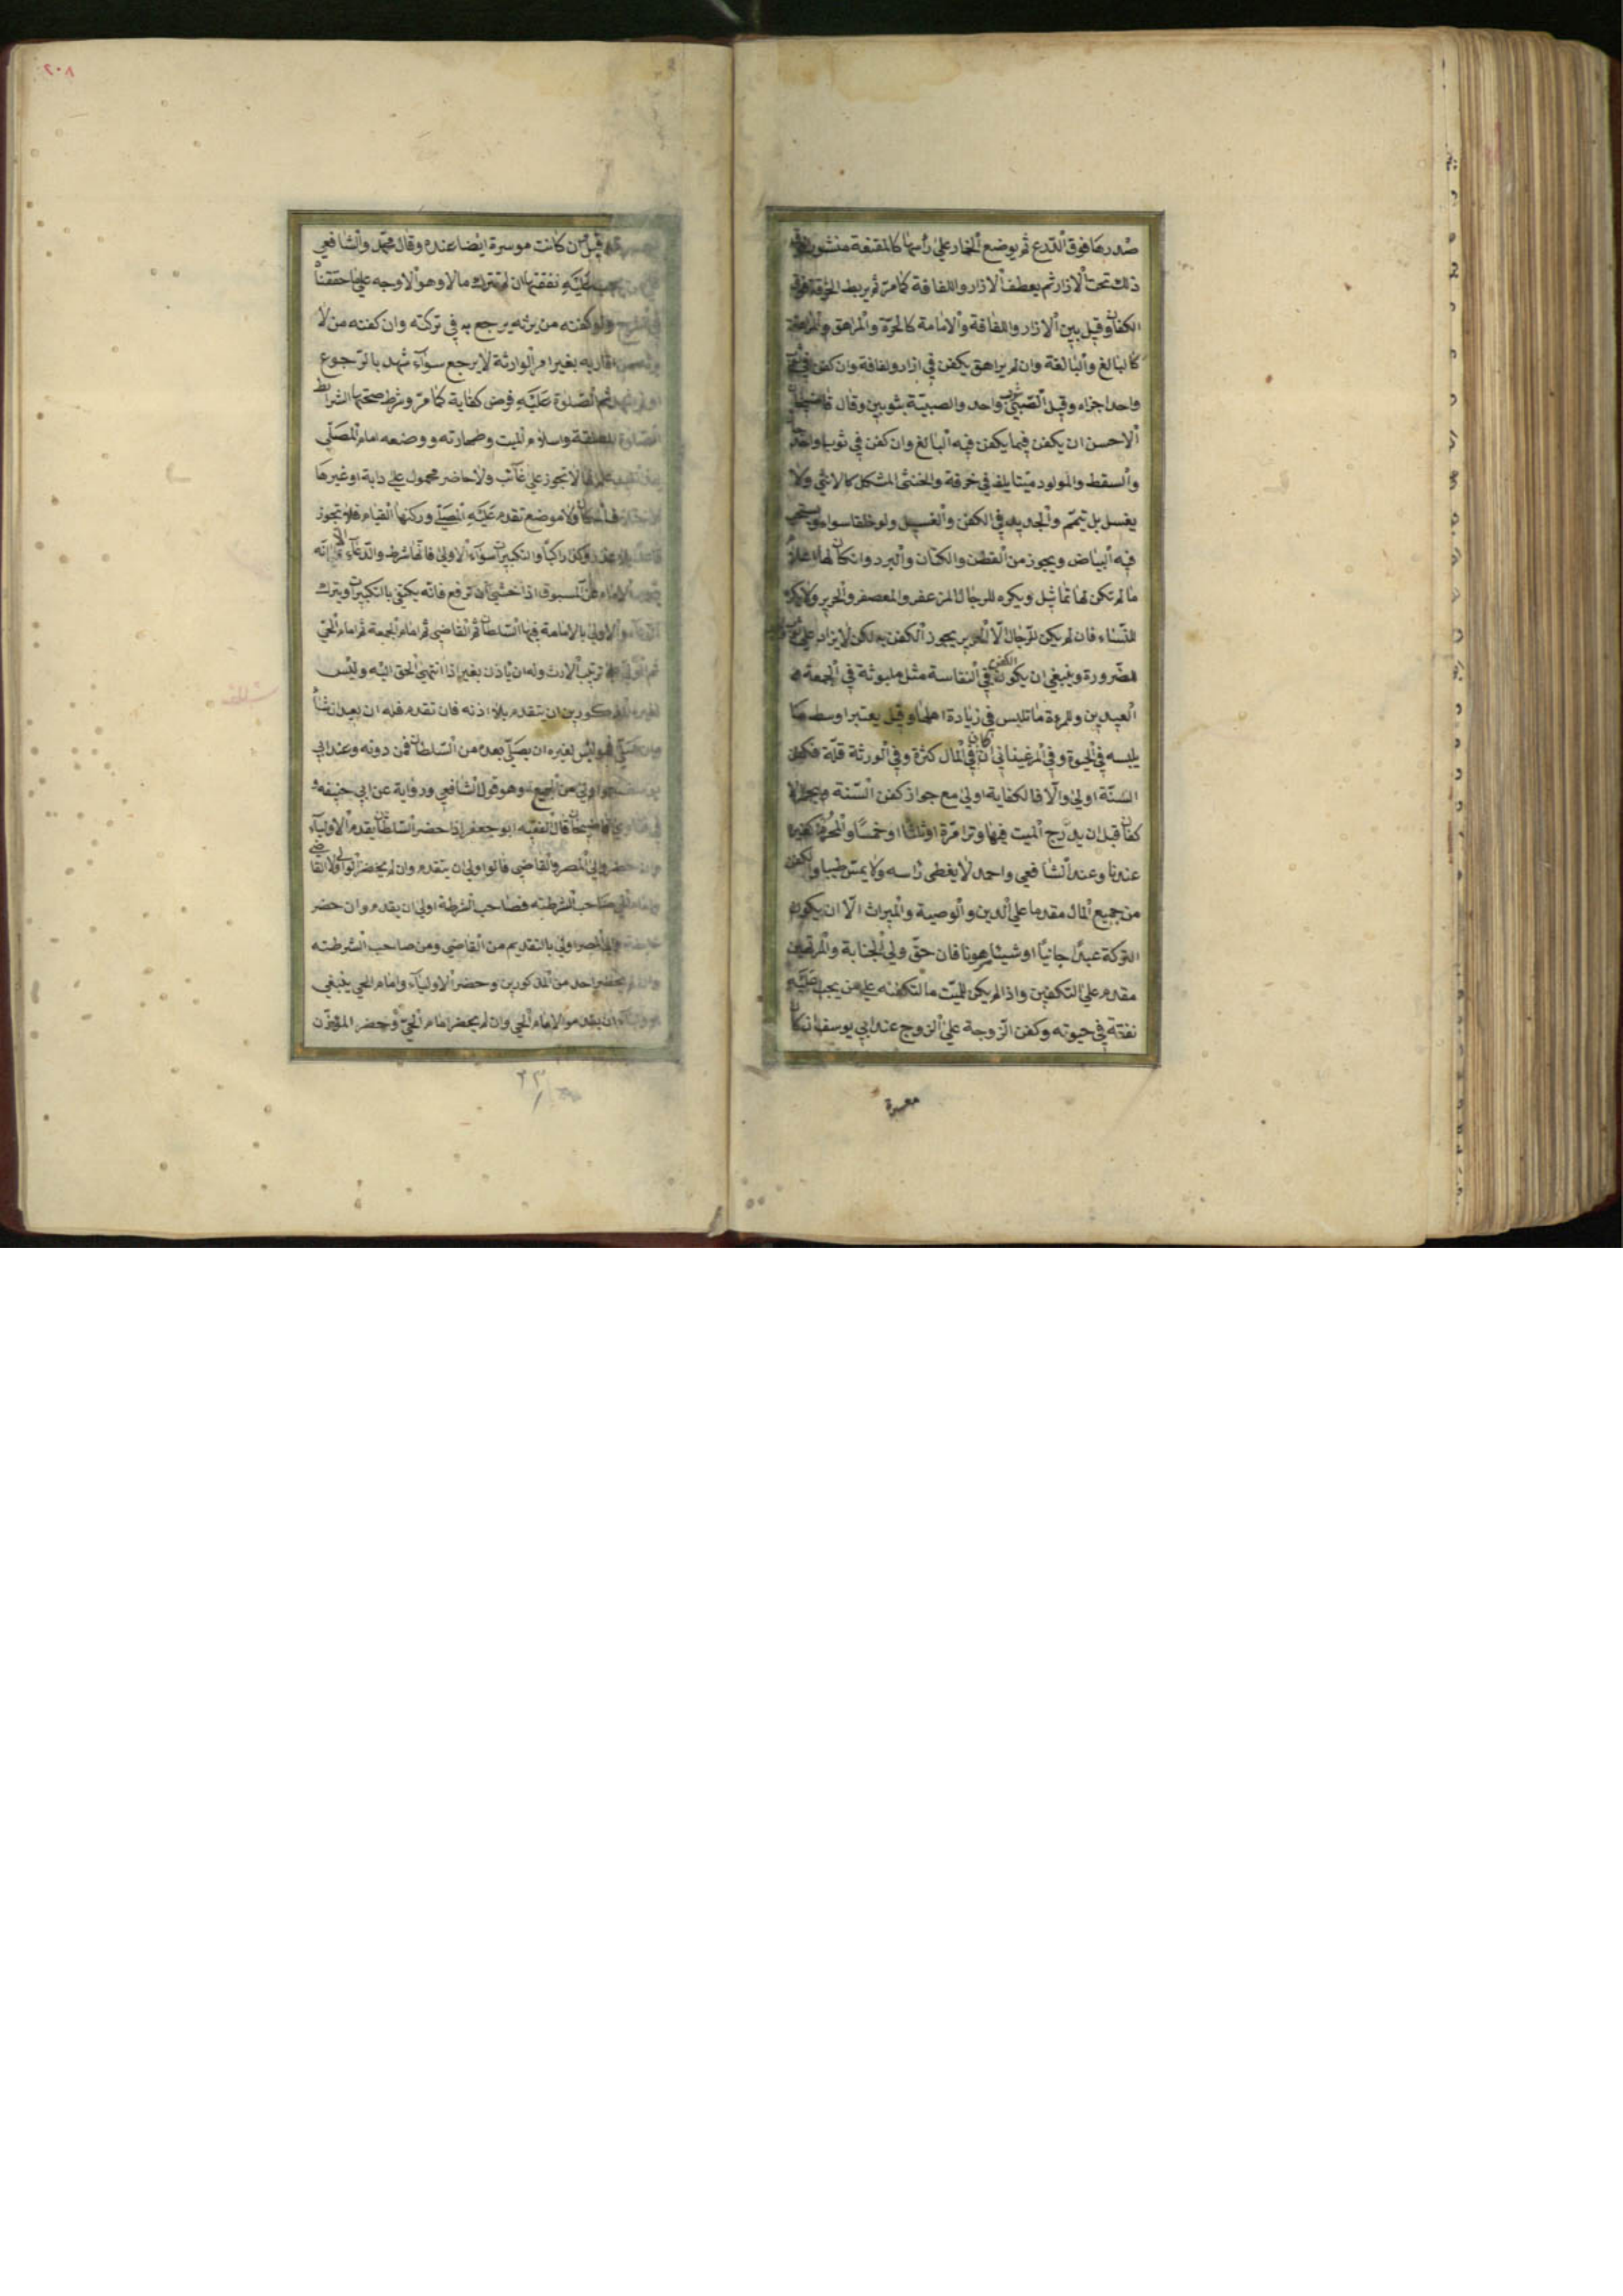 صدرها فوق الدرع ثم يوضع الخمار على رأسها كالمقنعة منشورا فوق
ذلك تحت الازار ثم يعطف الازار واللفافة كما مر ثم يربط الخرقة فوق
الكفان وقيل بين الازار واللفافة والامامة كالحرة والمراهق والمراهقة
كالبالغ والبالغة وان لم يراهق يكفن في ازار ولفافة وان كفن في
واحد اجزاه وقيل الصبي ثوب واحد والصبية بثوبين وقال قاضيخان
الاحسن ان يكفن فيما يكفن فيه البالغ وان كفن في ثوب واحد
والسقط والمولود ميتا يلف في خرقة والخنثى المشكل كالانثى ولا
يغسل بل تيمم والجديد في الكفن والغسيل ولو خلقا سواء ويستحب
فيه البياض ويجوز من القطن والكتان والبرد وان كان لها اعلام
ما لم تكن لها تماثيل ويكره للرجال المزعفر والمعصفر والحرير ولا يكره
للنساء فان لم يكن للرجال الا الحرير يجوز الكفن به لكن لا يزاد على
للضرورة وينبغي ان يكون الكفن في النفاسة مثل ملبوثة في الجمعة و
العيدين وللمرءة ما تلبس في زيادة اهلها وقيل يعتبر اوسط ما
يلبسه في الحيوة وفي المرغيناني ان كان في المال كثرة وفي الورثة قلة فكفن
السنة اولى والا فالكفاية اولى مع جواز كفن السنة
كفان قبل ان يدرج الميت فيها وترا مرة اوثلثا او خمسا والمحرم كغيره
عندنا وعند الشافعي واحمد لا يغطى رأسه ولا يمس طيبا والكفن
من جميع المال مقدما على الدين والوصية والميراث الا ان يكون
التركة عبدا جانيا او شيئا مرهونا فان حق ولي الجنابة والمرتهن
مقدم على التكفين واذا لم يكن للميت مال تكفنه على من يجب عليه
نفقته في حيوته وكفن الزوجة على الزوج عند ابي يوسف ان كان
معسرة
٢٠٨
قيل ان كانت موسرة ايضا عنده وقال محمد والشافعي
عليه نفقتها ان لم تترك مالا وهو الاوجه على ما حققنا
ولو كفنه من يرثه يرجع به في تركته وان كفنه من لا
اقاربه بغير امر الوارثة لا يرجع سواء شهد بالرجوع
ثم الصلوة عليه فرض كفاية كما مر وشرط صحتها الشرائط
المطلقة واسلام الميت وطهارته ووضعه امام المصلي
لا تجوز على غائب ولا حاضر محمول على دابة او غيرها
ولا موضع تقدم عليه المصلي وركنها القيام فلا تجوز
راكبا والتكبيرات سواء الاولى فانها شرط والدعاء الا انه
الامام عن المسبوق اذا خشي ان ترفع فانه يكتفي بالتكبيرات ويترك
والاولى بالامامة فيها السلطان ثم القاضي ثم امام الجمعة ثم امام الحي
ترتيب الارث وله ان يأذن بغير اذا انتهى الحق اليه وليس
المذكورين ان يتقدم بلا اذنه فان تقدم فله ان يعيد ان شاء
وليس لغيره ان يصلي بعده من السلطان فمن دونه وعند ابي
اولى من الجميع وهو قول الشافعي ورواية عن ابي حنيفه و
قاضيخان قال الفقيه ابو جعفر اذا حضر السلطان يقدم الاولياء
والي المصر والقاضي قالوا اولى ان يتقدم وان لم يحضر الوالي ولا القاضي
صاحب الشرطة فصاحب الشرطة اولى ان يقدم وان حضر
المصر اولى بالتقديم من القاضي ومن صاحب الشرطته
يحضر احد من المذكورين وحضر الاولياء وامام الحي ينبغي
ان يقدموا الامام الحي وان لم يحضر امام الحي وحضر المؤذن